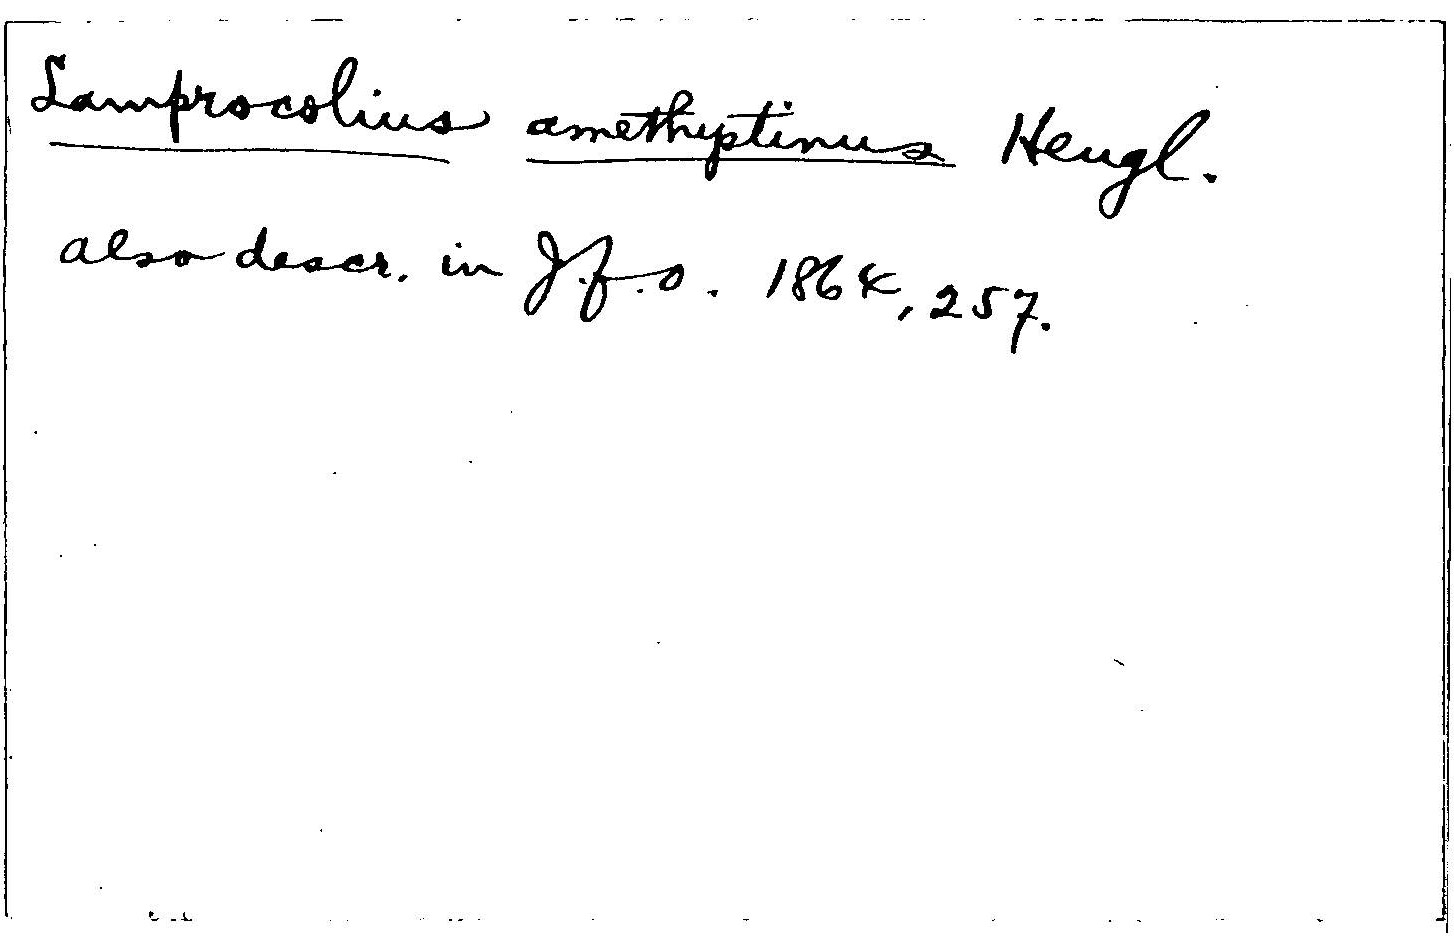 Lamprocolius amethystinus Heugl.
also descr. in J.f.O. 1864, 257.